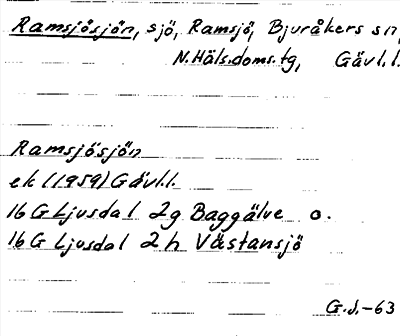 Ramsjösjön, sjö, Ramsjö, Bjuråkers sn,
N.Häls.doms.tg, Gävl.l.
Ramsjösjön
ek (1959) Gävl.l.
16 G Ljusdal 2g Baggälve o.
16 G Ljusdal 2h Västansjö
G.J.-63